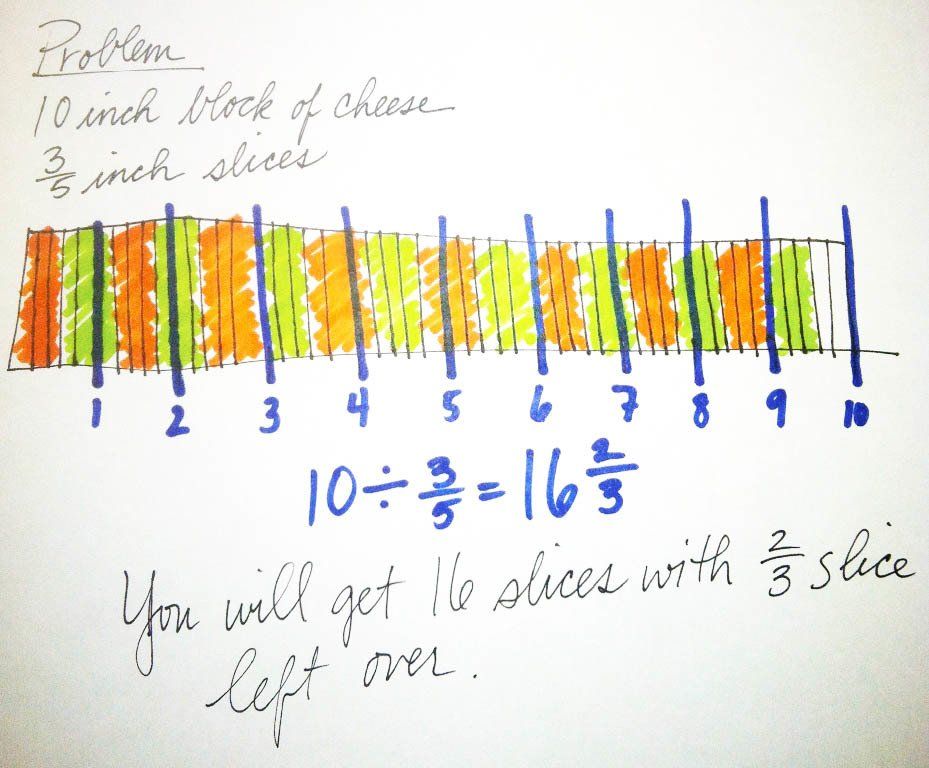 Problem
10 inch block of cheese
3/5 inch slices
1 2 3 4 5 6 7 8 9 10
10 ÷ 3/5 = 16 2/3
You will get 16 slices with 2/3 slice
left over.